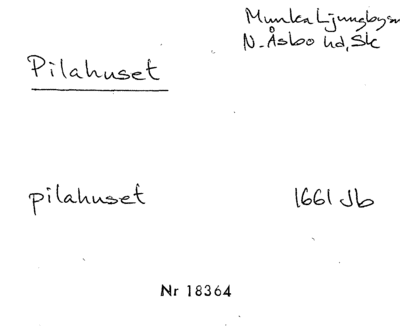 Munka Ljungby sn
N. Åsbo hd, Sk
Pilahuset
pilahuset 1661 Jb
Nr 18364